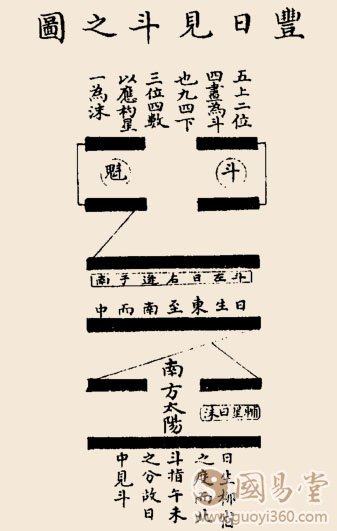 豐日見斗之圖
五上二位
四畫為斗
也九四下
三位四數
以應杓星
一為沫
斗
魁
斗左日右
日生東至南而中
南方太陽
輔星曰沫
日止柳
之度而北
斗指午未
之分故日
中見斗
國易堂
www.guoyi360.com